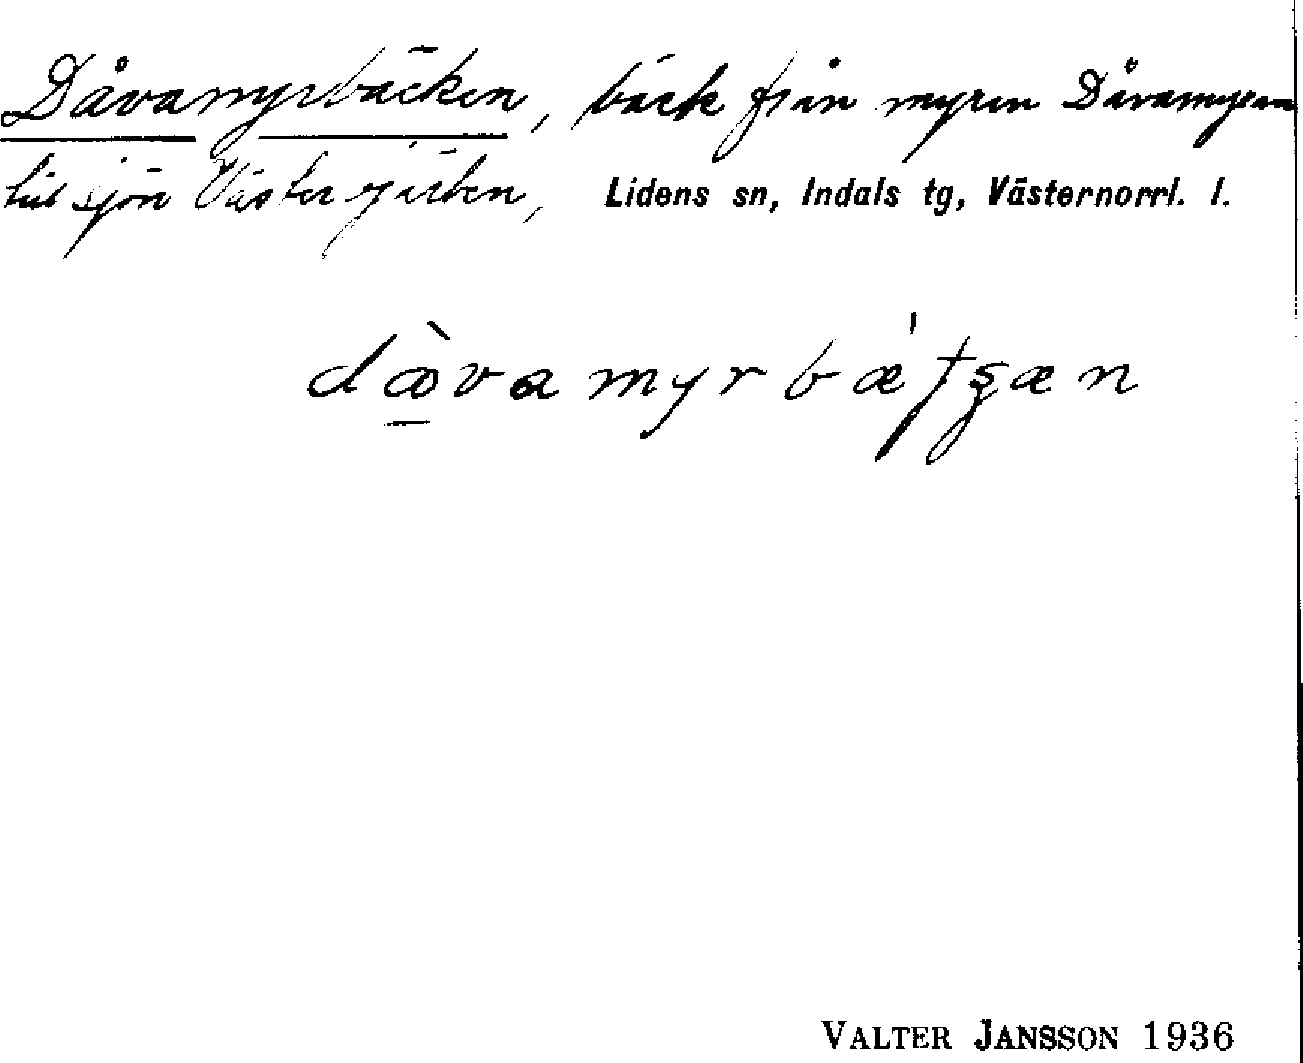 Dåvamyrbäcken, bäck från myren Dåvamyren
till sjön Västergärden, Lidens sn, Indals tg, Västernorrl. l.
VALTER JANSSON 1936